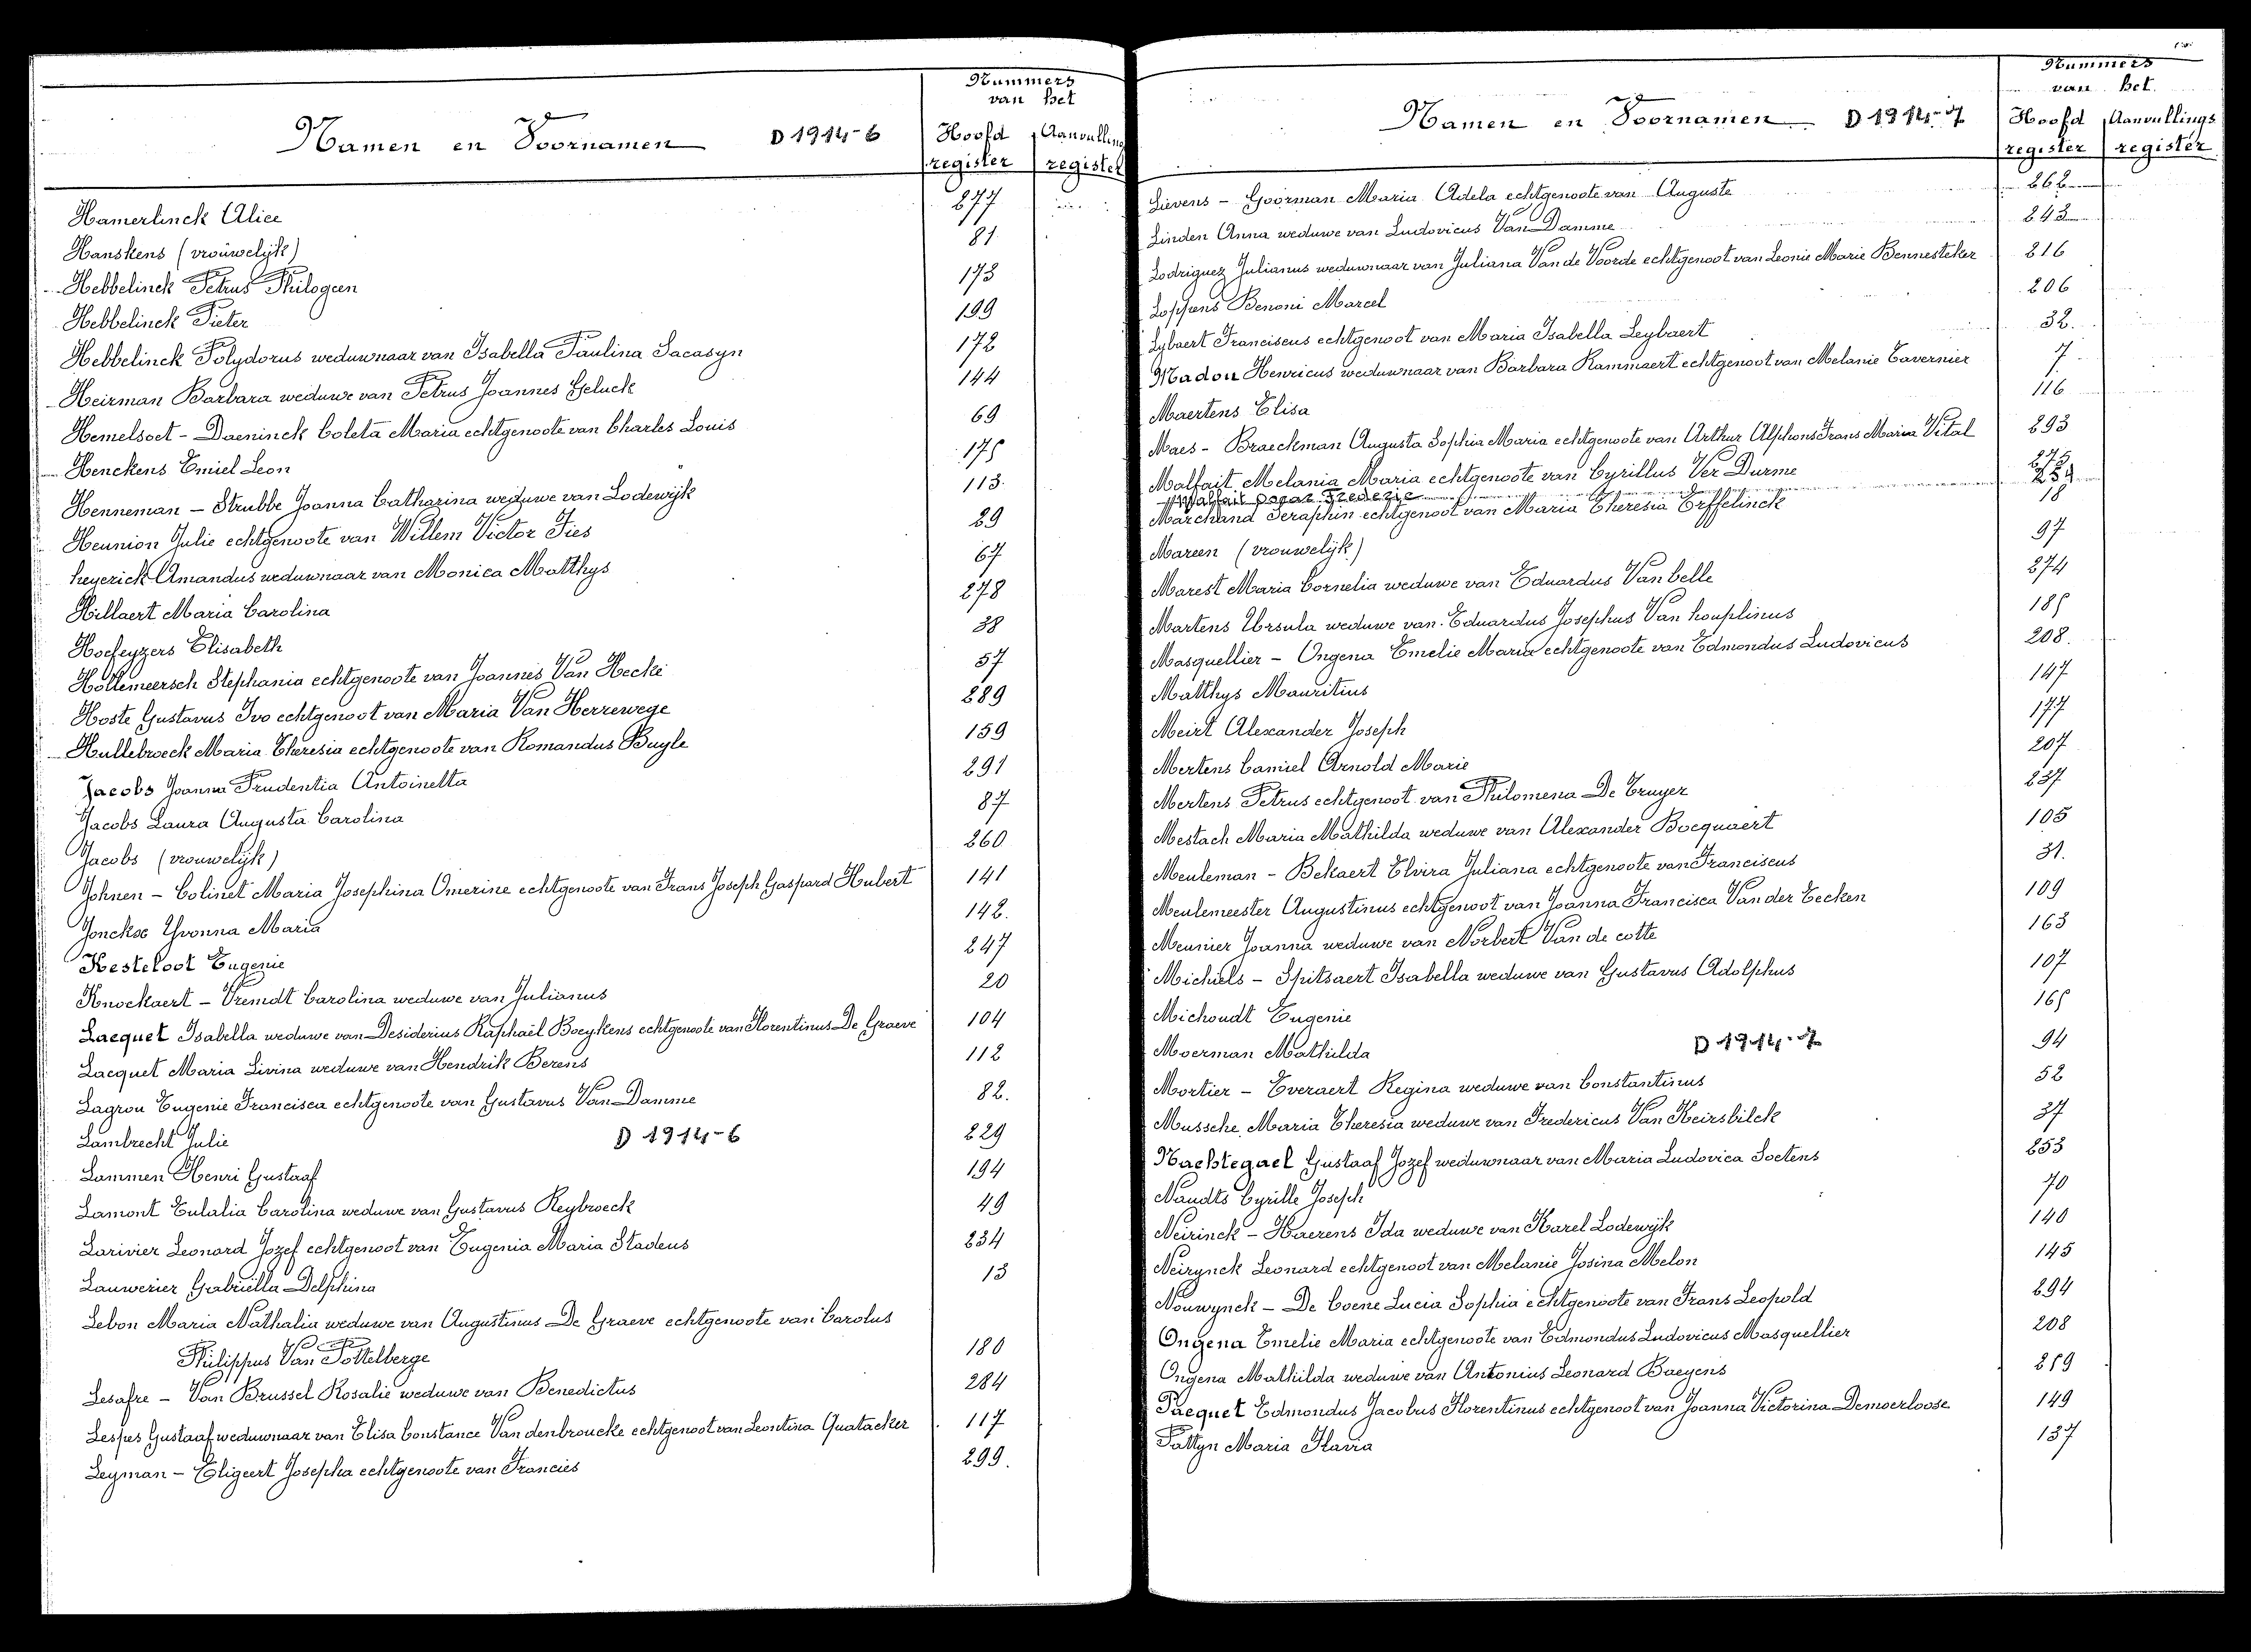 Namen en Voornamen D 1914-6 Nummers van het Hoofd register Aanvulling register
Hamerlinck Alice 277
Hanskens (vrouwelijk) 81
Hebbelinck Petrus Philogeen 173
Hebbelinck Pieter 199
Hebbelinck Polydorus weduwnaar van Isabella Paulina Sacasyn 172
Heirman Barbara weduwe van Petrus Joannes Geluck 144
Hemelsoet - Daeninck Coleta Maria echtgenoote van Charles Louis 69
Henckens Emiel Leon 175
Henneman - Strubbe Joanna Catharina weduwe van Lodewijk 113.
Heunion Julie echtgenoote van Willem Victor Fies 29
heyerick Amandus weduwnaar van Monica Matthys 67
Hillaert Maria Carolina 278
Hoefeyzers Elisabeth 38
Hollemeersch Stephania echtgenoote van Joannes Van Hecke 57
Hoste Gustavus Ivo echtgenoot van Maria Van Herrewege 289
Hullebroeck Maria Theresia echtgenoote van Romandus Buyle 159
Jacobs Joanna Prudentia Antoinetta 291
Jacobs Laura Augusta Carolina 87
Jacobs (vrouwelijk) 260
Johnen - Colinet Maria Josephina Omerine echtgenoote van Frans Joseph Gaspard Hubert 141
Jonckse Yvonna Maria 142.
Kesteloot Eugenie 247
Knockaert - Vremdt Carolina weduwe van Julianus 20
Lacquet Isabella weduwe van Desiderius Raphaël Boeykens echtgenoote van Florentinus De Graeve 104
Lacquet Maria Livina weduwe van Hendrik Berens 112
Lagrou Eugenie Francisca echtgenoote van Gustavus Van Damme 82.
Lambrecht Julie D 1914-6 229
Lammen Henri Gustaaf 194
Lamont Eulalia Carolina weduwe van Gustavus Reybroeck 49
Larivier Leonard Jozef echtgenoot van Eugenia Maria Stadeus 234
Lauwerier Gabriëlla Delphina 13
Lebon Maria Nathalia weduwe van Augustinus De Graeve echtgenoote van Carolus
Philippus Van Pottelberge 180
Lesafre - Van Brussel Rosalie weduwe van Benedictus 284
Lespes Gustaaf weduwnaar van Elisa Constance Vandenbroucke echtgenoot van Leontina Quatacker 117
Leyman - Eligeert Josepha echtgenoote van Francies 299.
Namen en Voornamen D 1914-7 Nummers van het Hoofd register Aanvullings register
Lievens - Goorman Maria Adela echtgenoote van Auguste 262
Linden Anna weduwe van Ludovicus Van Damme 243
Lodriguez Julianus weduwnaar van Juliana Van de Voorde echtgenoot van Leonie Marie Bennesteker 216
Loppens Benoni Marcel 206
Lybaert Franciscus echtgenoot van Maria Isabella Leybaert 32.
Madou Henricus weduwnaar van Barbara Rammaert echtgenoot van Melanie Tavernier 7
Maertens Elisa 116
Maes - Braeckman Augusta Sophia Maria echtgenoote van Arthur Alphons Frans Maria Vital 293
Malfait Melania Maria echtgenoote van Cyrillus Ver Durme
Malfait Oscar Frederic
Marchand Seraphin echtgenoot van Maria Theresia Erffelinck 18
Mareen (vrouwelijk) 97
Marest Maria Cornelia weduwe van Eduardus Van belle 274
Martens Ursula weduwe van Eduardus Josephus Van houplinus 185
Masquellier - Ongena Emelie Maria echtgenoote van Edmondus Ludovicus 208.
Matthys Mauritius 147
Meirt Alexander Joseph 177
Mertens Camiel Arnold Marie 207
Mertens Petrus echtgenoot van Philomena De Cruyer 237
Mestach Maria Mathilda weduwe van Alexander Bocquaert 105
Meuleman - Bekaert Elvira Juliana echtgenoote van Franciscus 31.
Meulemeester Augustinus echtgenoot van Joanna Francisca Van der Eecken 109
Meunier Joanna weduwe van Norbert Van de cotte 163
Michiels - Spitsaert Isabella weduwe van Gustavus Adolphus 107
Michoudt Eugenie 165
Moerman Mathilda D 1914-7 94
Mortier - Everaert Regina weduwe van Constantinus 52
Mussche Maria Theresia weduwe van Fredericus Van Keirsbilck 37
Nachtegael Gustaaf Jozef weduwnaar van Maria Ludovica Soetens 253
Naudts Cyrille Joseph 70
Neirinck - Haerens Ida weduwe van Karel Lodewijk 140
Neirynck Leonard echtgenoot van Melanie Josina Melon 145
Nouwynck - De Coene Lucia Sophia echtgenoote van Frans Leopold 294
Ongena Emelie Maria echtgenoote van Edmondus Ludovicus Masquellier 208
Ongena Mathilda weduwe van Antonius Leonard Baeyens 259
Pacquet Edmondus Jacobus Florentinus echtgenoot van Joanna Victorina Demoerloose 149
Pattyn Maria Flavia 137